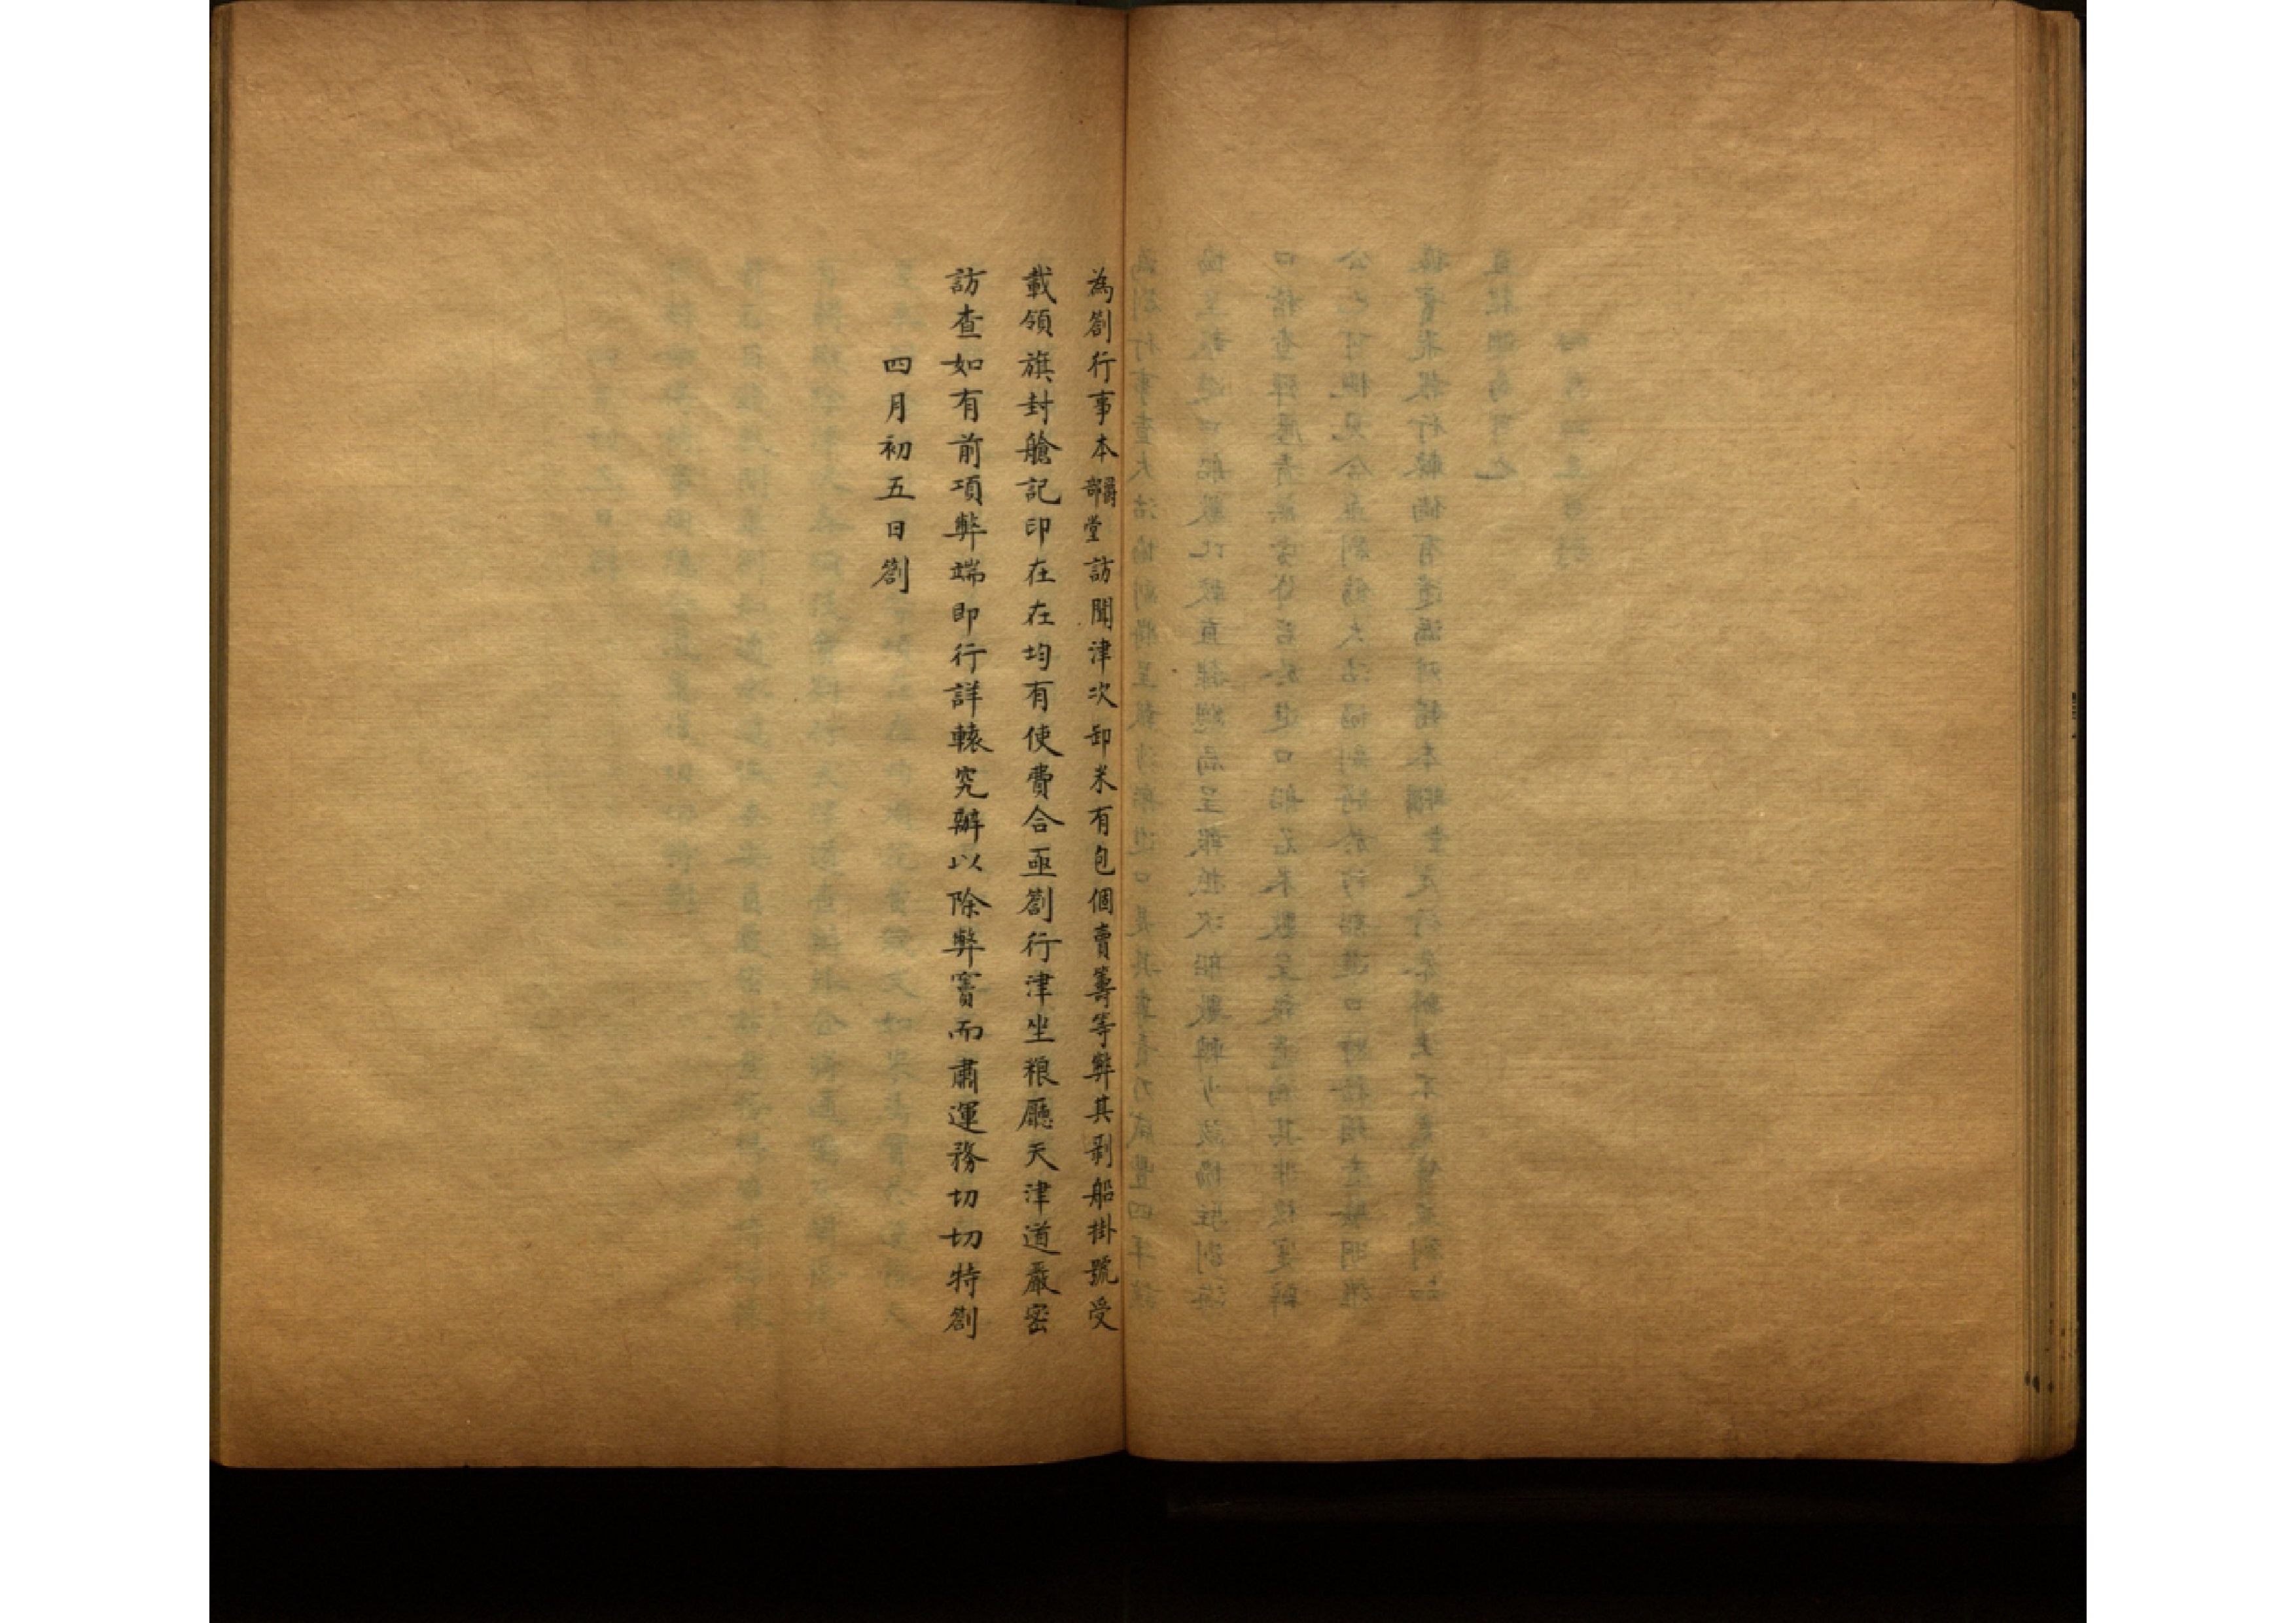 為劄行事本部爵堂訪聞津次卸米有包個賣籌等弊其剥船掛號受
載領旗封艙記印在在均有使費合亟劄行津坐粮廳天津道嚴密
訪查如有前項弊端即行詳轅究辦以除弊竇而肅運務切切特劄
四月初五日劄